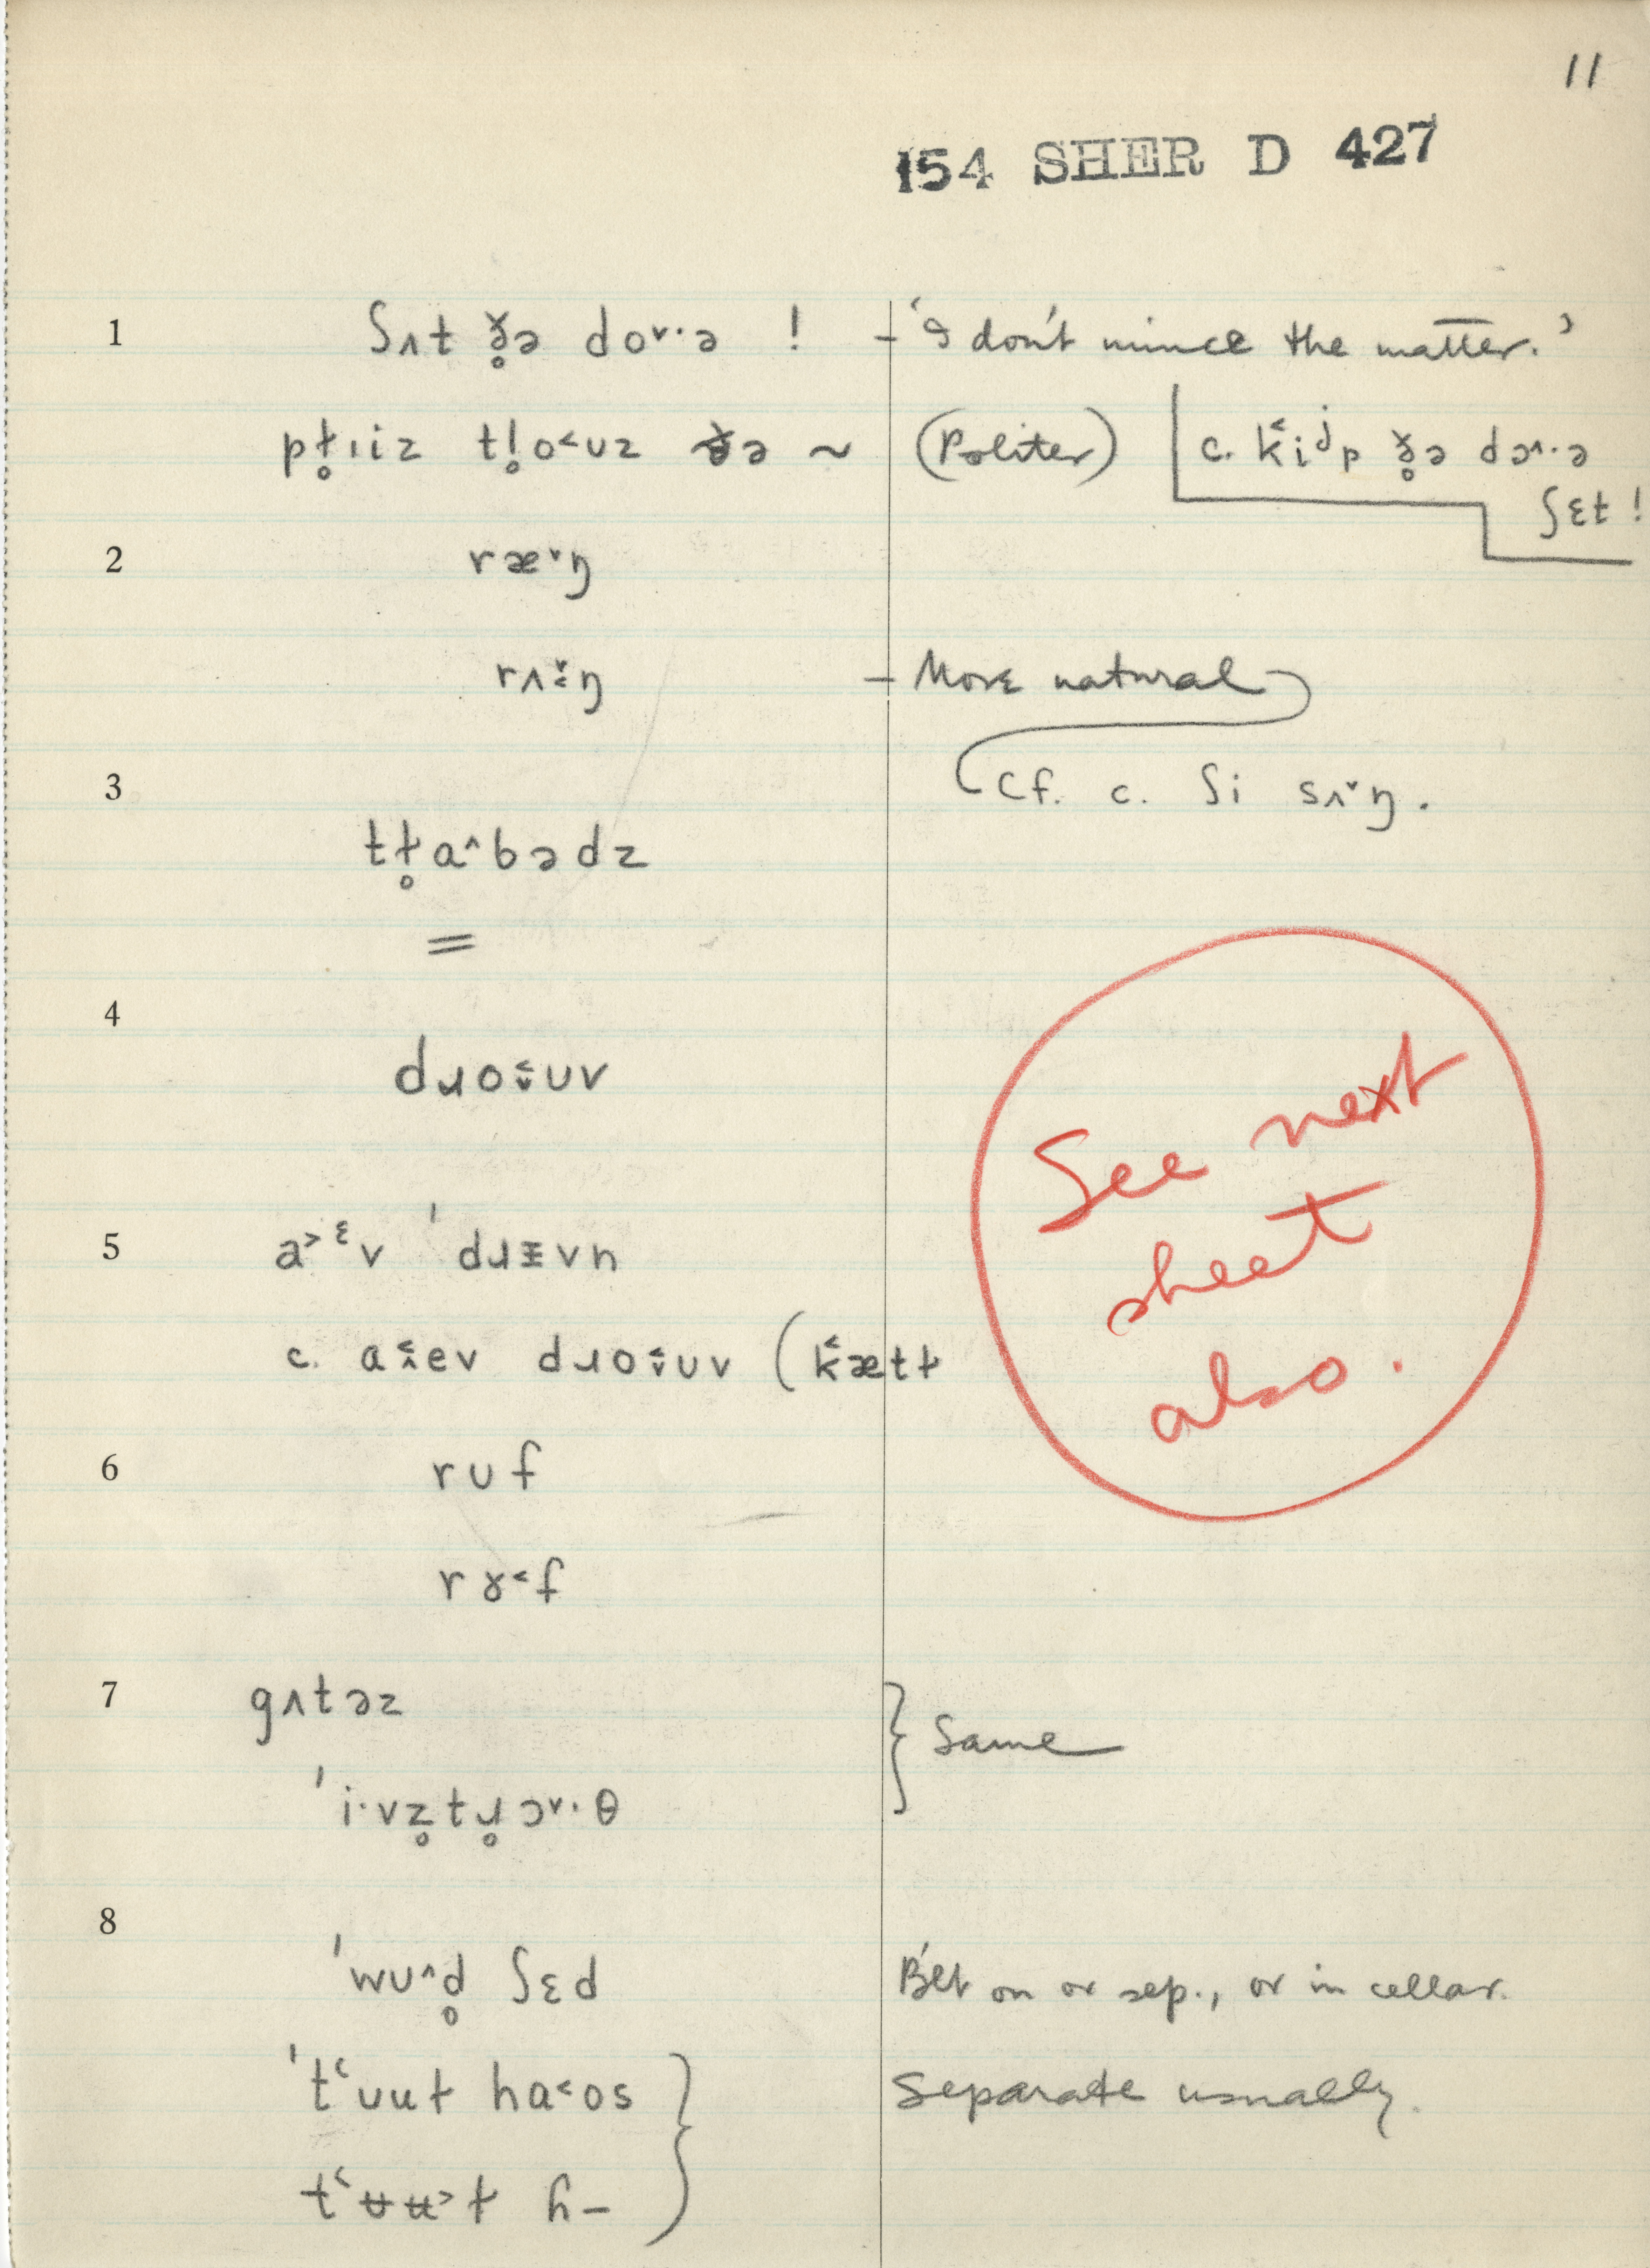 11
154 SHER D 427
1 ʃʌt ð̥ə doˇ·ə ! – 'I don't mince the matter.'
pɫ̥ɪiz tl̥o˂ʊz ðə ~ (Politer) c. k˂iʲp ð̥ə dɔ^·ə
ʃɛt !
2 ræˇŋ
rʌ˂̌ŋ – More natural
3 Cf. c. ʃi sʌˇŋ.
tɫ̥a^bədz
=
4 dɹo˂̌ʊv
5 a˃ᵋv ˈdɹɪvn
c. a˂̂ev dɹo˂̌ʊv (k˂ætɫ
6 rʊf
rɤ˂f
7 gʌtəz } Same
ˈi·vz̥tɹ̥ɔˇ·θ
8 ˈwʊ^d̥ ʃɛd B'lt on or sep., or in cellar.
ˈtʻʊuɫ ha˂os } Separate usually.
tʻʊ̵ʉ˃ɫ h–
See next
sheet
also.